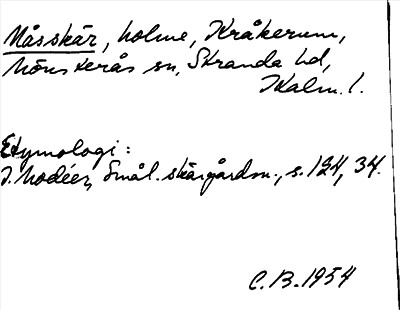 Måsskär, holme, Kråkerum,
Mönsterås sn, Stranda hd,
Kalm. l.
Etymologi:
I. Modéer, Smål. skärgårdsn., s. 124, 34.
C. B. 1954